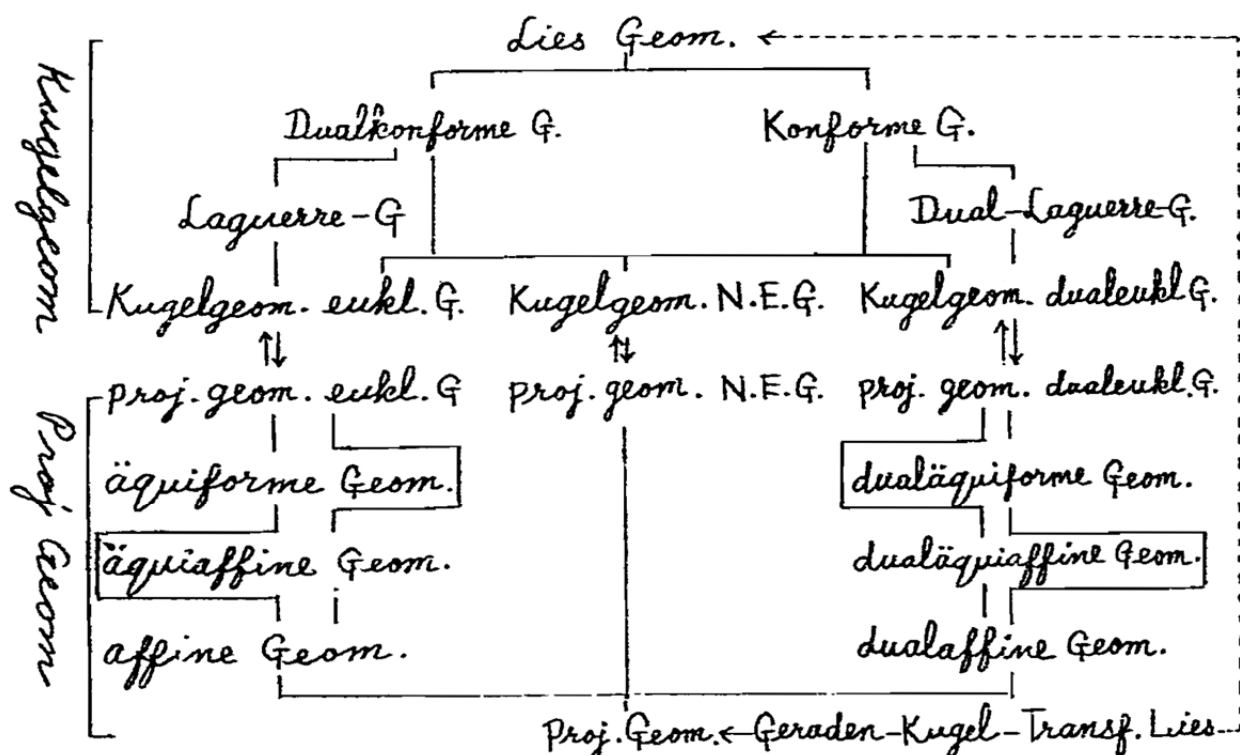 Lies Geom.
Dualkonforme G. Konforme G.
Laguerre-G Dual-Laguerre-G.
Kugelgeom. eukl. G. Kugelgeom. N.E.G. Kugelgeom. dualeukl. G.
proj. geom. eukl. G proj. geom. N.E.G. proj. geom. dualeukl. G.
äquiforme Geom. dualäquiforme Geom.
äquiaffine Geom. dualäquiaffine Geom.
affine Geom. dualaffine Geom.
Proj. Geom. ← Geraden-Kugel-Transf. Lies
Kugelgeom
Proj Geom